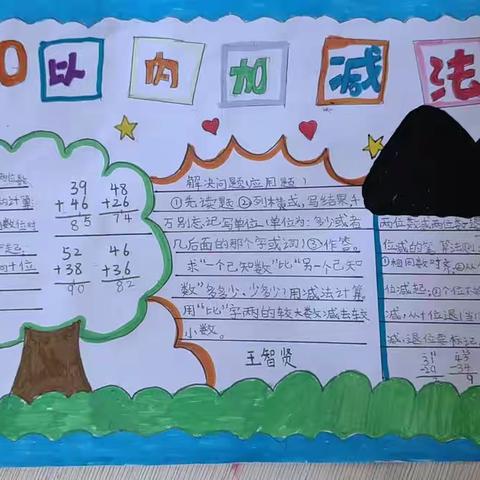 0以内加减法
两位数
计算:
数位对
39
+46
85
48
+26
74
52
+38
90
46
+36
82
解决问题(应用题)
①先读题②列横式,写结果千
万别忘记写单位(单位为:多少或者
几后面的那个字或词)③作答。
求“一个已知数”比“另一个已知
数”多多少、少多少?用减法计算。
用“比”字两的较大数减去较
小数。
王智贤
两位数或两位数
位减的笔算法则
①相同数对齐;②从
位减起;③个位不
减,从十位退1当
减,退位要标记。